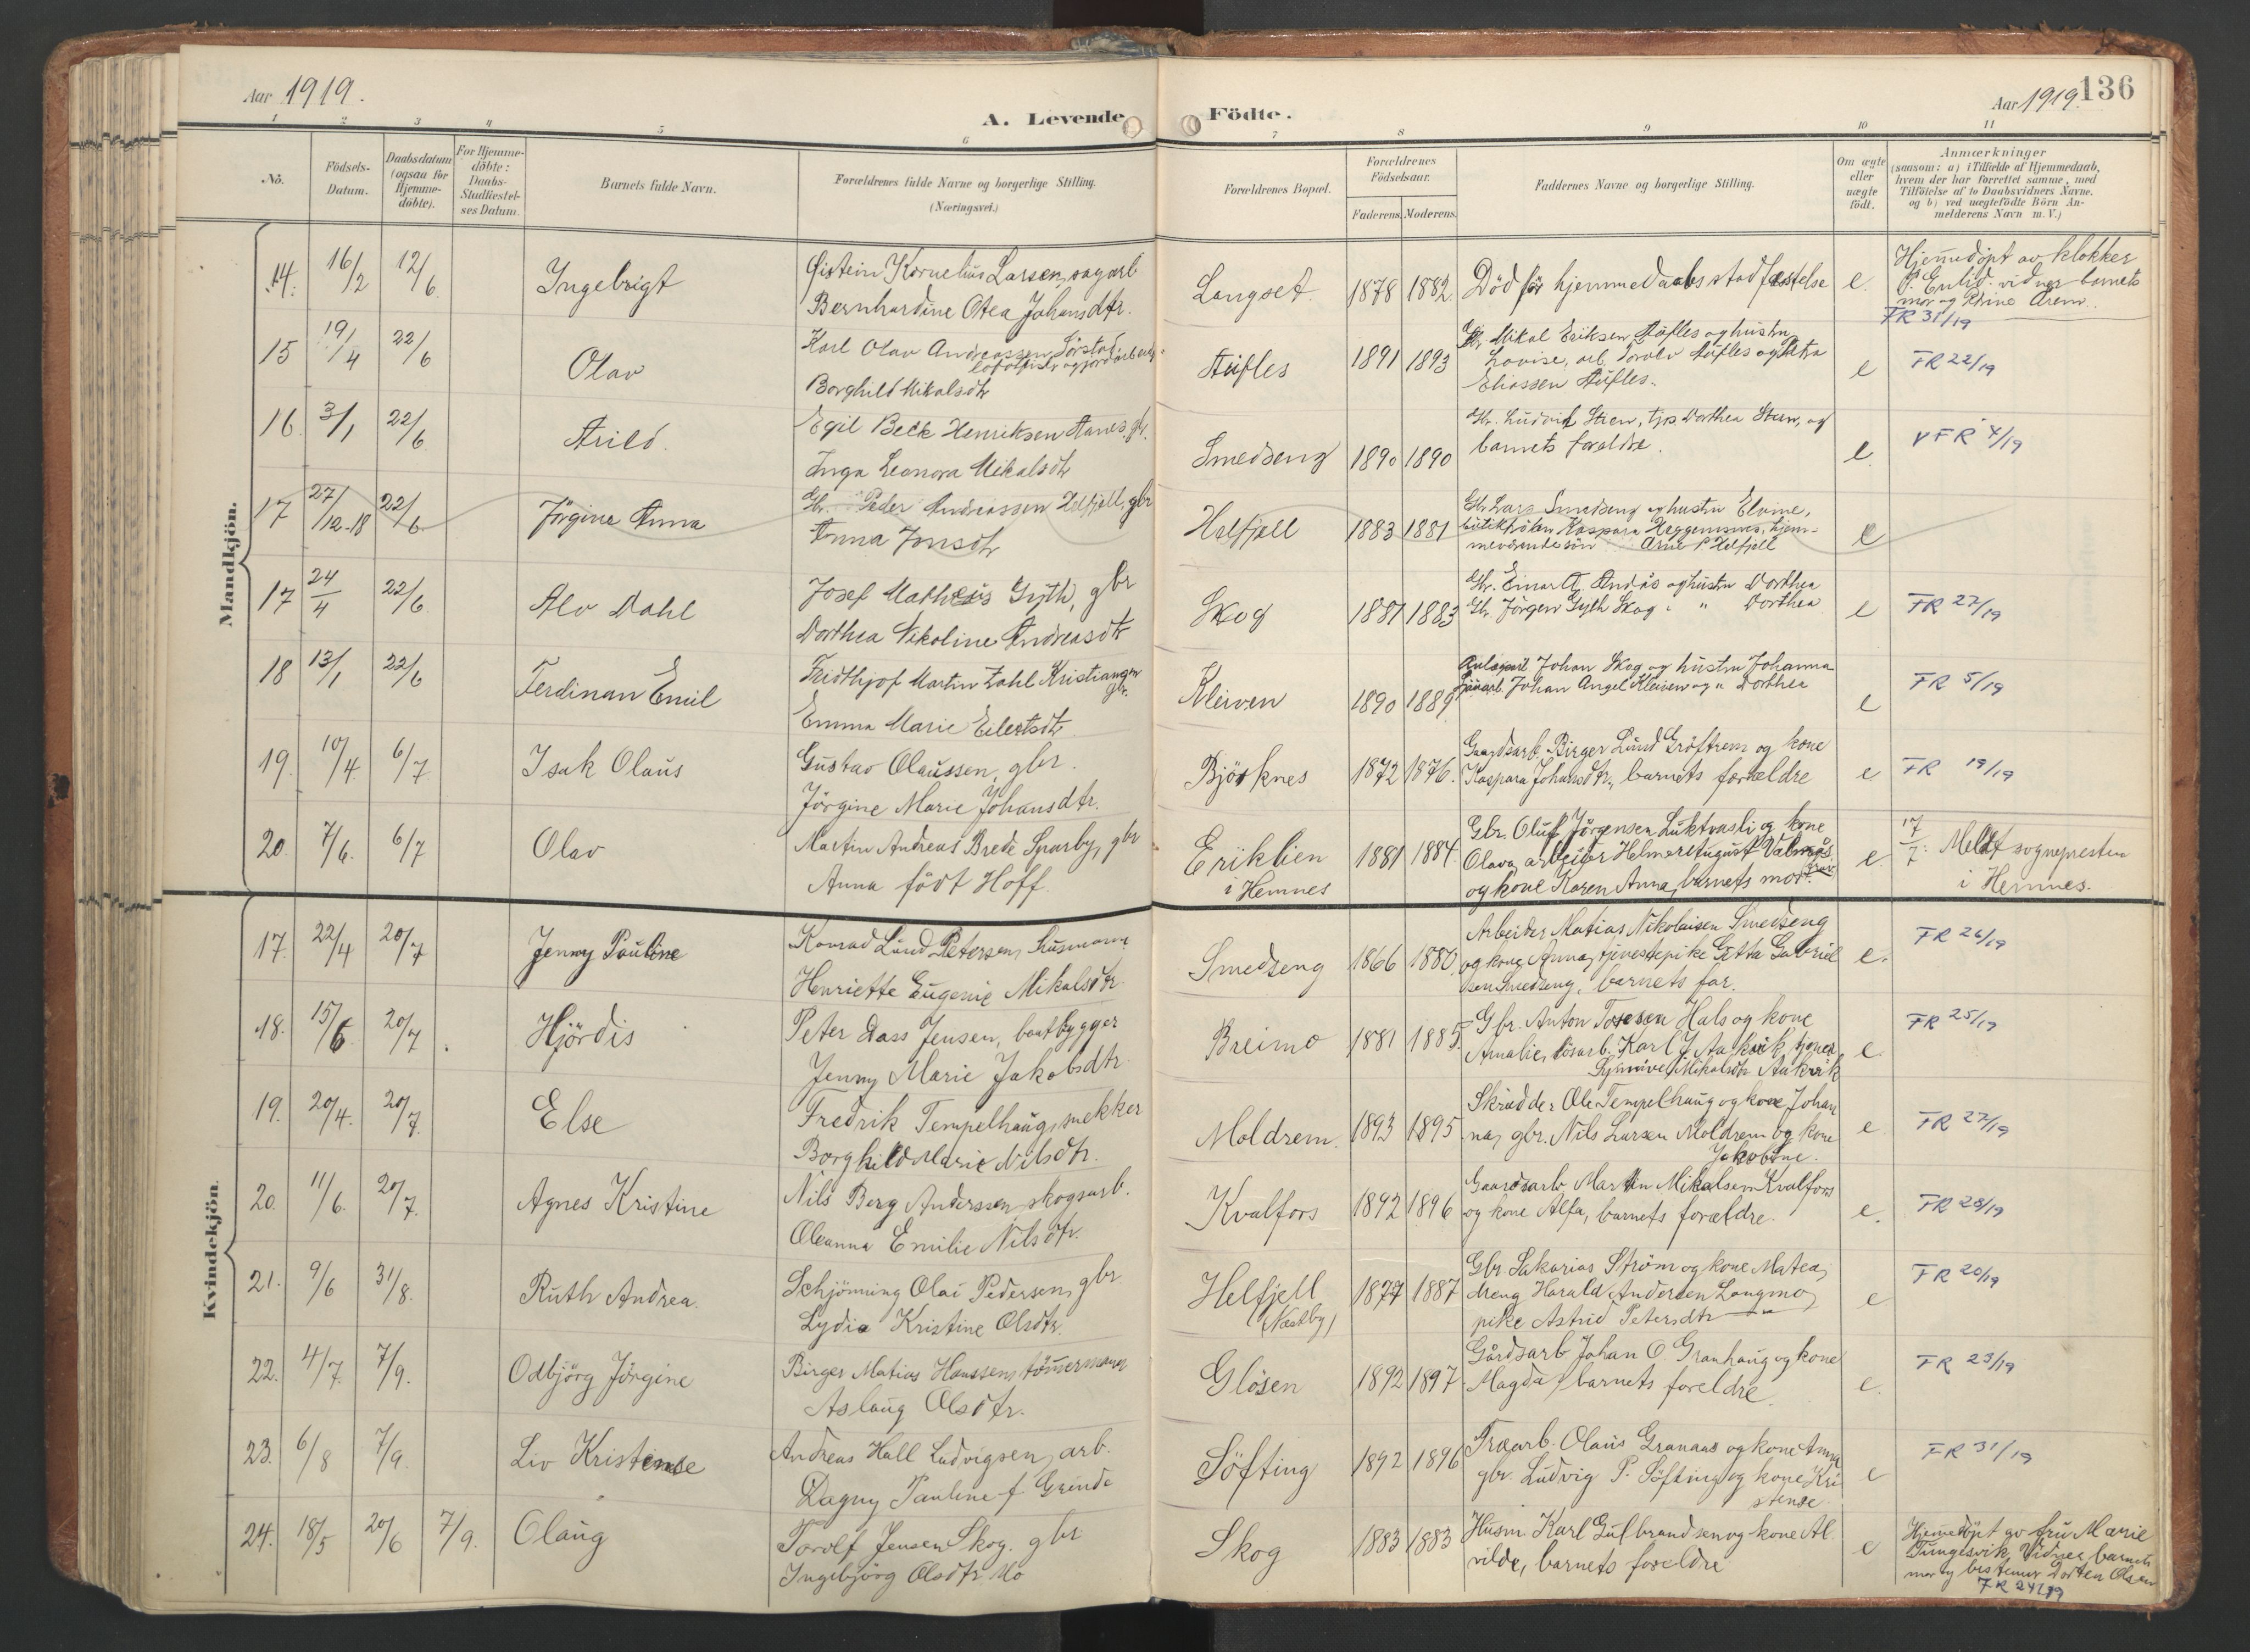 Aar 1919.
A. Levende Födte.
Aar 1919. 136
1 2 3 4 5 6 7 8 9 10 11
Nö.
Födsels-Datum.
Daabsdatum (ogsaa for Hjemmedöbte).
For Hjemmedöbte: Daabs-Stadfæstelses Datum.
Barnets fulde Navn.
Forældrenes fulde Navne og borgerlige Stilling. (Næringsvei.)
Forældrenes Bopæl.
Forældrenes Födselsaar.
Faderens. Moderens.
Faddernes Navne og borgerlige Stilling.
Om ægte eller uægte födt.
Anmærkninger
(saasom: a) i Tilfælde af Hjemmedaab,
hvem der har forrettet samme, med
Tilföielse af to Daabsvidners Navne.
og b) ved uægtefödte Börn Anmelderens Navn m. V.)
Mandkjön.
14. 16/2 12/6 Ingebrigt
Øistein Kornelius Larsen, sagarb
Bernhardine Otea Johansdtr.
Langset 1878 1882 Död för hjemmedaabsstadfæstelse e.
Hjemmedöpt av klokker
vidner barnets
mor og
FR 31/19
15 19/4 22/6 Olav
Karl Olav Andreassen
Borghild Mikalsdtr
Aufles 1891 1893
Gbr. Mikal Eriksen Aufles og hustru
Lovise, arb. Torolv Aufles og Petra
Eliassen Aufles.
e FR 22/19
16. 3/1 22/6 Arild.
Egil Beck Henriksen Aanes. gbr.
Inga Leonora Mikalsdtr
Smedseng 1890 1890
Gbr. Ludvik Steen, tjp. Dorthea Steen, og
barnets forældre.
e. FR 4/19
17 27/12-18 22/6 Jörgine Anna
Gbr. Peder Andreassen Helfjell, gbr
Anna Jensdtr
Helfjell 1883 1881
Gbr Lars Smedseng og hustru Elvine,
Kaspara hjem-
meværende sön Arne P Helfjell
e
17 24/4 22/6 Alv Dahl
Josef Matheus Gyth, gbr
Dorthea Nikoline Andreasdtr
Skog 1881 1883
Gbr. Einar A. Andås og hustru Dorthea
Gbr Jörgen Gyth Skog " Dorthea
e FR 27/19
18 13/1 22/6 Ferdinan Emil
Fridthjof Martin Zahl Kristiansen
gbr.
Emma Marie Eilertsdtr
Kleiven 1890 1889
Johan Skog og hustru Johanna
Johan Angel Kleiven og " Dorthea
e FR 5/19
19. 10/4. 6/7 Isak Olaus
Gustav Olaussen, gbr.
Jörgine Marie Johansdtr.
Björknes 1872 1876.
Gaardsarb. Birger Lund Gröftrem og kone
Kaspara Johansdtr, barnets forældre
e FR 19/19
20. 7/6. 6/7 Olav
Martin Andreas Brede Sparby, gbr
Anna födt Hoff.
Eriklien
i Hemnes 1881 1884.
Gbr. Oluf Jörgensen Luktvasli og kone
Olava, arbeider Helmer August
og kone Karen Anna, barnets mor.
e. 17/7: Meldt sognepresten
i Hemnes.
Kvindekjön.
17. 22/4 20/7 Jenny Pauline
Konrad Lund Petersen, husmann
Henriette Eugenie Mikalsdtr.
Smedseng 1866 1880.
Arbeider Matias Nikolaisen Smedseng
og kone Anna, tjenestepike Gitta Gabriel
sen Smedseng, barnets far.
e. FR 26/19
18. 15/6 20/7 Hjördis
Peter Dass Jensen, baatbygger
Jenny Marie Jakobsdtr.
Breimo 1881 1885.
Gbr. Anton Tosesen Hals og kone
Amalie, lösarb. Karl J. Aakvik,
Mikalsdtr Aakvik
e. FR 25/19
19. 20/4. 20/7. Else
Fredrik Tempelhaug, snekker
Borghild Marie Nilsdtr.
Moldrem. 1893 1895
Skrædder Ole Tempelhaug og kone Johan
na, gbr. Nils Larsen Moldrem og kone
Jakobine.
e FR 27/19
20. 11/6. 20/7. Agnes Kristine
Nils Berg Anderssen, skogsarb.
Oleanna Emilie Nilsdtr.
Kvalfors 1892 1896
Gaardsarb Martin Mikalsen Kvalfors
og kone Alfa, barnets forældre.
e. FR 28/19
21. 9/6 31/8. Ruth Andrea.
Schjönning Olai Pedersen, gbr
Lydia Kristine Olsdtr.
Helfjell
(Næstby) 1877 1887
Gbr Sakarias Ström og kone Matea,
dreng Harald Andersen Langmo,
pike Astrid Petersdtr — " —
e FR 20/19
22. 4/7. 7/9. Odbjörg Jörgine
Birger Matias Hanssen, tömmermann
Aslaug Olsdtr.
Glösen 1892 1897
Gårdsarb Johan O. Granhaug og kone
Magda, barnets foreldre.
e. FR 23/19
23. 6/8 7/9. Liv Kristense
Andreas Hall Ludvigsen, arb.
Dagny Pauline f Grinde
Söfting 1892 1896
Træarb. Olaus Granaas og kone Anna
gbr. Ludvig P. Söfting og kone Kri
stense
e FR 31/19
24. 18/5 20/6 7/9. Olaug
Torolf Jensen Skog. gbr
Ingebjörg Olsdtr. Mo
Skog 1883 1883
Husm. Karl Gulbrandsen og kone Al
vilde, barnets foreldre
e Hjemmedöpt av fru Marie
Tungesvik. Vidner barnets
mor og bestemor Dorten Olsen
FR 24/19